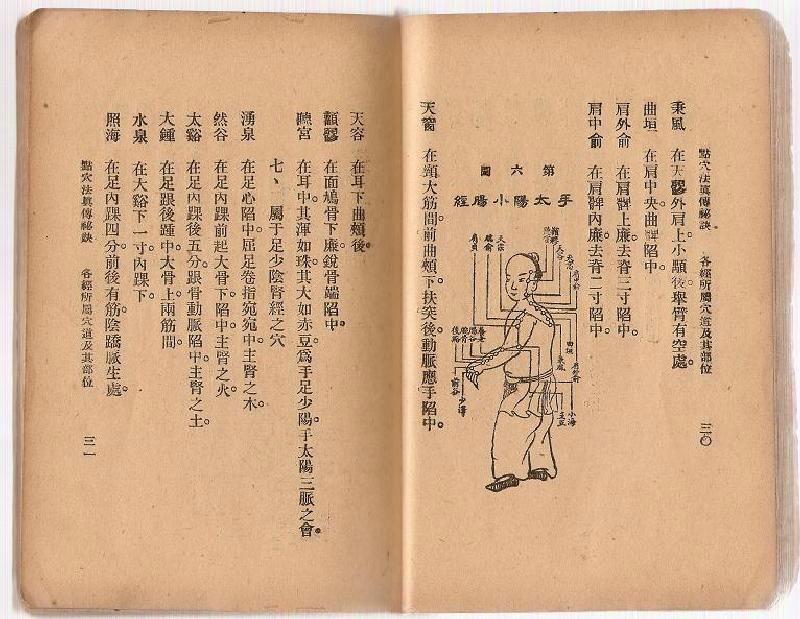 點穴法眞傳祕訣 各經所屬穴道及其部位 三〇
秉風 在天髎外肩上小顒後舉臂有空處。
曲垣 在肩中央曲髀陷中。
肩外俞 在肩髀上廉去脊三寸陷中。
肩中俞 在肩髀內廉去脊二寸陷中。
第六圖
手太陽小腸經
天容
肩貞
臑俞
天宗
曲垣
秉風
肩外俞
小海
後谿
前谷
少澤
天窗 在頸大筋間前曲頰下扶突後動脈應手陷中。
天容 在耳下曲頰後。
顴髎 在面鳩骨下廉銳骨端陷中。
聽宮 在耳中。其渾如珠。其大如赤豆。爲手足少陽手太陽三脈之會。
七、 屬于足少陰腎經之穴
湧泉 在足心陷中。屈足卷指宛宛中。主腎之木。
然谷 在足內踝前起大骨下陷中。主腎之火。
太谿 在足內踝後五分。跟骨動脈陷中。主腎之土。
大鍾 在足跟後踵中。大骨上兩筋間。
水泉 在太谿下一寸。內踝下。
照海 在足內踝四分。前後有筋。陰蹻脈生處。
點穴法眞傳祕訣 各經所屬穴道及其部位 三一